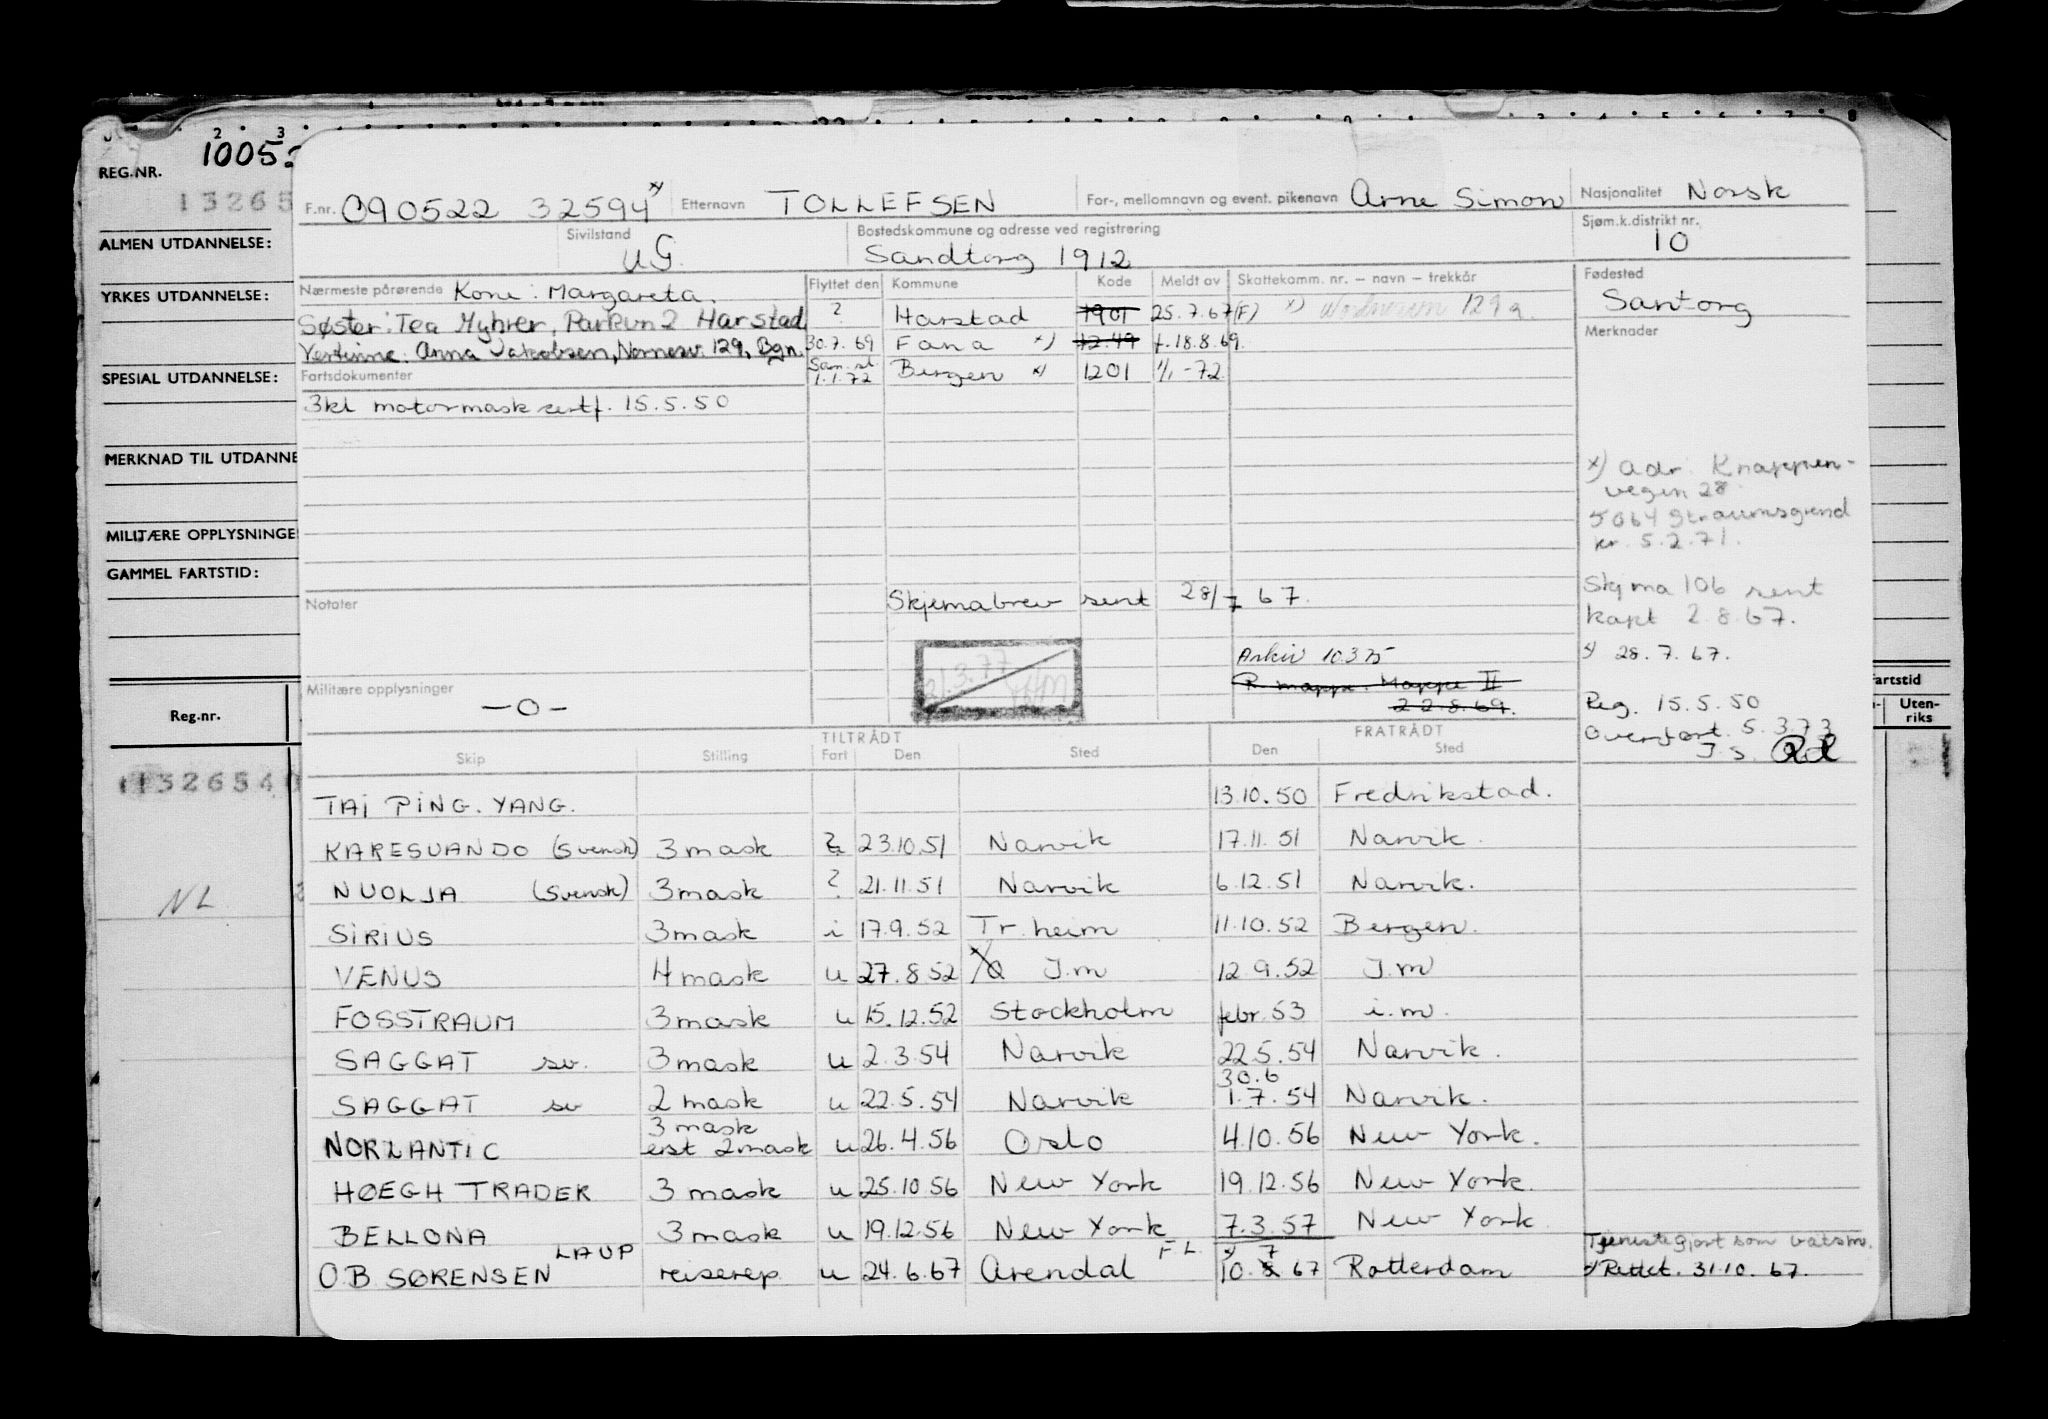 2 3
REG.NR. 1005
13265
ALMEN UTDANNELSE:
YRKES UTDANNELSE:
SPESIAL UTDANNELSE:
MERKNAD TIL UTDANNE
MILITÆRE OPPLYSNINGE
GAMMEL FARTSTID:
Reg.nr.
1326540
NL
F.nr. 090522 32594 x) Etternavn TOLLEFSEN For-, mellomnavn og event. pikenavn Arne Simon Nasjonalitet Norsk
Sivilstand UG Bostedskommune og adresse ved registrering Sandtorg 1912 Sjøm.k.distrikt nr. 10
Nærmeste pårørende Kone: Margareta. Flyttet den Kommune Kode Meldt av Skattekomm. nr. – navn – trekkår Fødested
Søster: Tea Myhrer, Parkvn 2 Harstad ? Harstad 1901 25.7.67 (F) x) 129 a. Santorg
Vertinne: Anna Jakobsen, Nornesv. 129, Bgn. 30.7.69 Fana x) 12.49 f. 18.8.69. Merknader
Fartsdokumenter Sam. st. 1.1.72 Bergen x) 1201 1/1-72
3kl motormask sertf. 15.5.50
x) adr. Knappen-
vegen 28
5064 Straumsgrend
kr. 5.2.71.
Skjma 106 sent
kapt 2.8.67.
Notater Skjemabrev sent 28/7 67.
21.3.77
Arkiv 10375
x) 28.7.67.
R. mappe. Mappe II
22.8.69.
Militære opplysninger —0—
Reg. 15.5.50
Overført. 5.3.73
J.S.
artstid
Uten-
riks
TILTRÅDT FRATRÅDT
Skip Stilling Fart Den Sted Den Sted
TAI PING. YANG. 13.10.50 Fredrikstad.
KARESUANDO (Svensk) 3 mask ? 23.10.51 Narvik 17.11.51 Narvik.
NUOLJA (Svensk) 3 mask ? 21.11.51 Narvik 6.12.51 Narvik.
SIRIUS 3 mask i 17.9.52 Tr.heim 11.10.52 Bergen.
VENUS 4 mask u 27.8.52 J.m 12.9.52 J.m
FOSSTRAUM 3 mask u 15.12.52 Stockholm febr. 53 i.m.
SAGGAT sv. 3 mask u 2.3.54 Narvik 22.5.54 Narvik.
30.6
SAGGAT sv 2 mask u 22.5.54 Narvik 1.7.54 Narvik.
3 mask
NORLANTIC est 2 mask u 26.4.56 Oslo 4.10.56 New York.
HØEGH TRADER 3 mask u 25.10.56 New York 19.12.56 New York.
BELLONA 3 mask u 19.12.56 New York 7.3.57 New York
LAUP F.L. x) 7 Tjenestegjort som båtsm.
O.B. SØRENSEN reiserep. u 24.6.67 Arendal 10. 67 Rotterdam x) Rettet. 31.10.67.